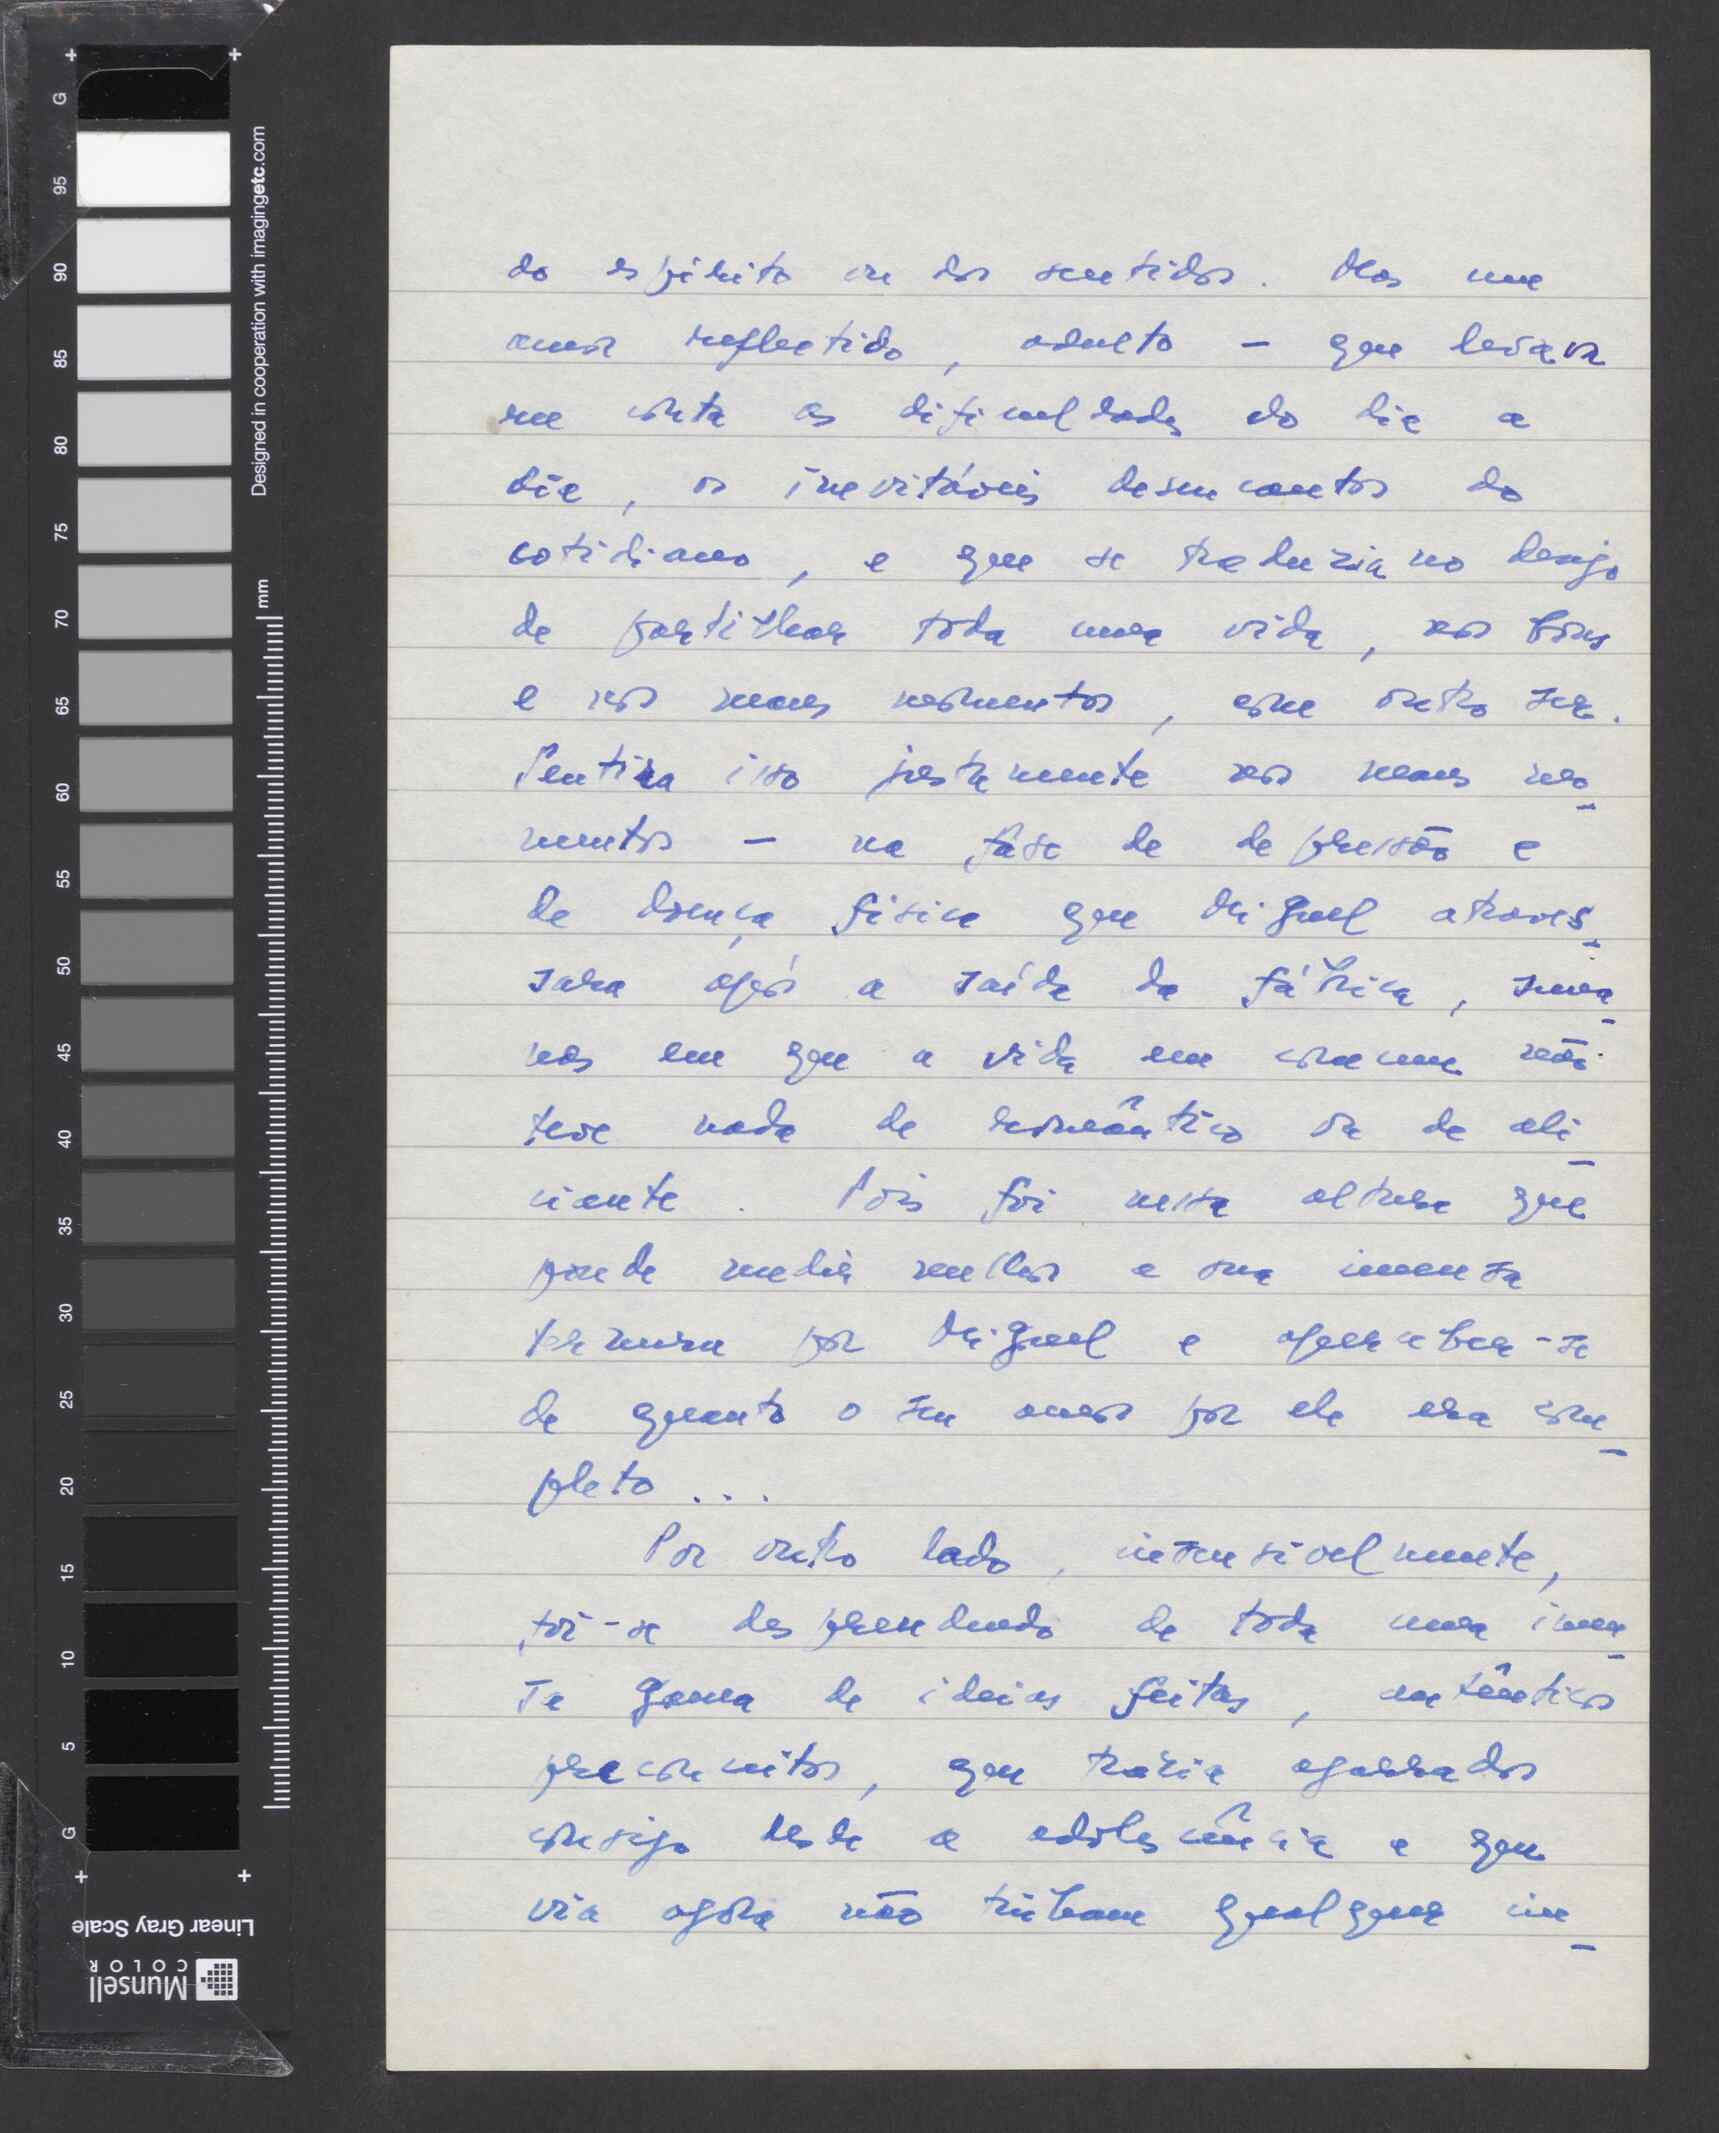 do espírito ou dos sentidos. Mas um
amor reflectido, adulto — que levava
em conta as dificuldades do dia a
dia, os inevitáveis desencantos do
cotidiano, e que se traduzia no desejo
de partilhar toda uma vida, nos bons
e nos maus momentos, com outro ser.
Sentira isso justamente nos maus mo-
mentos — na fase de depressão e
de doença física que Miguel atraves-
sara após a saída da fábrica, sema-
nas em que a vida em comum não
teve nada de romântico ou de ali-
ciante. Pois foi nessa altura que
pude medir melhor a sua imensa
ternura por Miguel e aperceber-se
de quanto o seu amor por ele era com-
pleto...
Por outro lado, insensivelmente,
foi-se desprendendo de toda uma imen-
sa gama de ideias feitas, autênticos
preconceitos, que trazia agarrados
consigo desde a adolescência e que
via agora não tinham qualquer im-
G
95
90
85
80
75
70
65
60
55
50
45
40
35
30
25
20
15
10
5
G
mm
Designed in cooperation with imagingetc.com
Linear Gray Scale
Munsell
COLOR